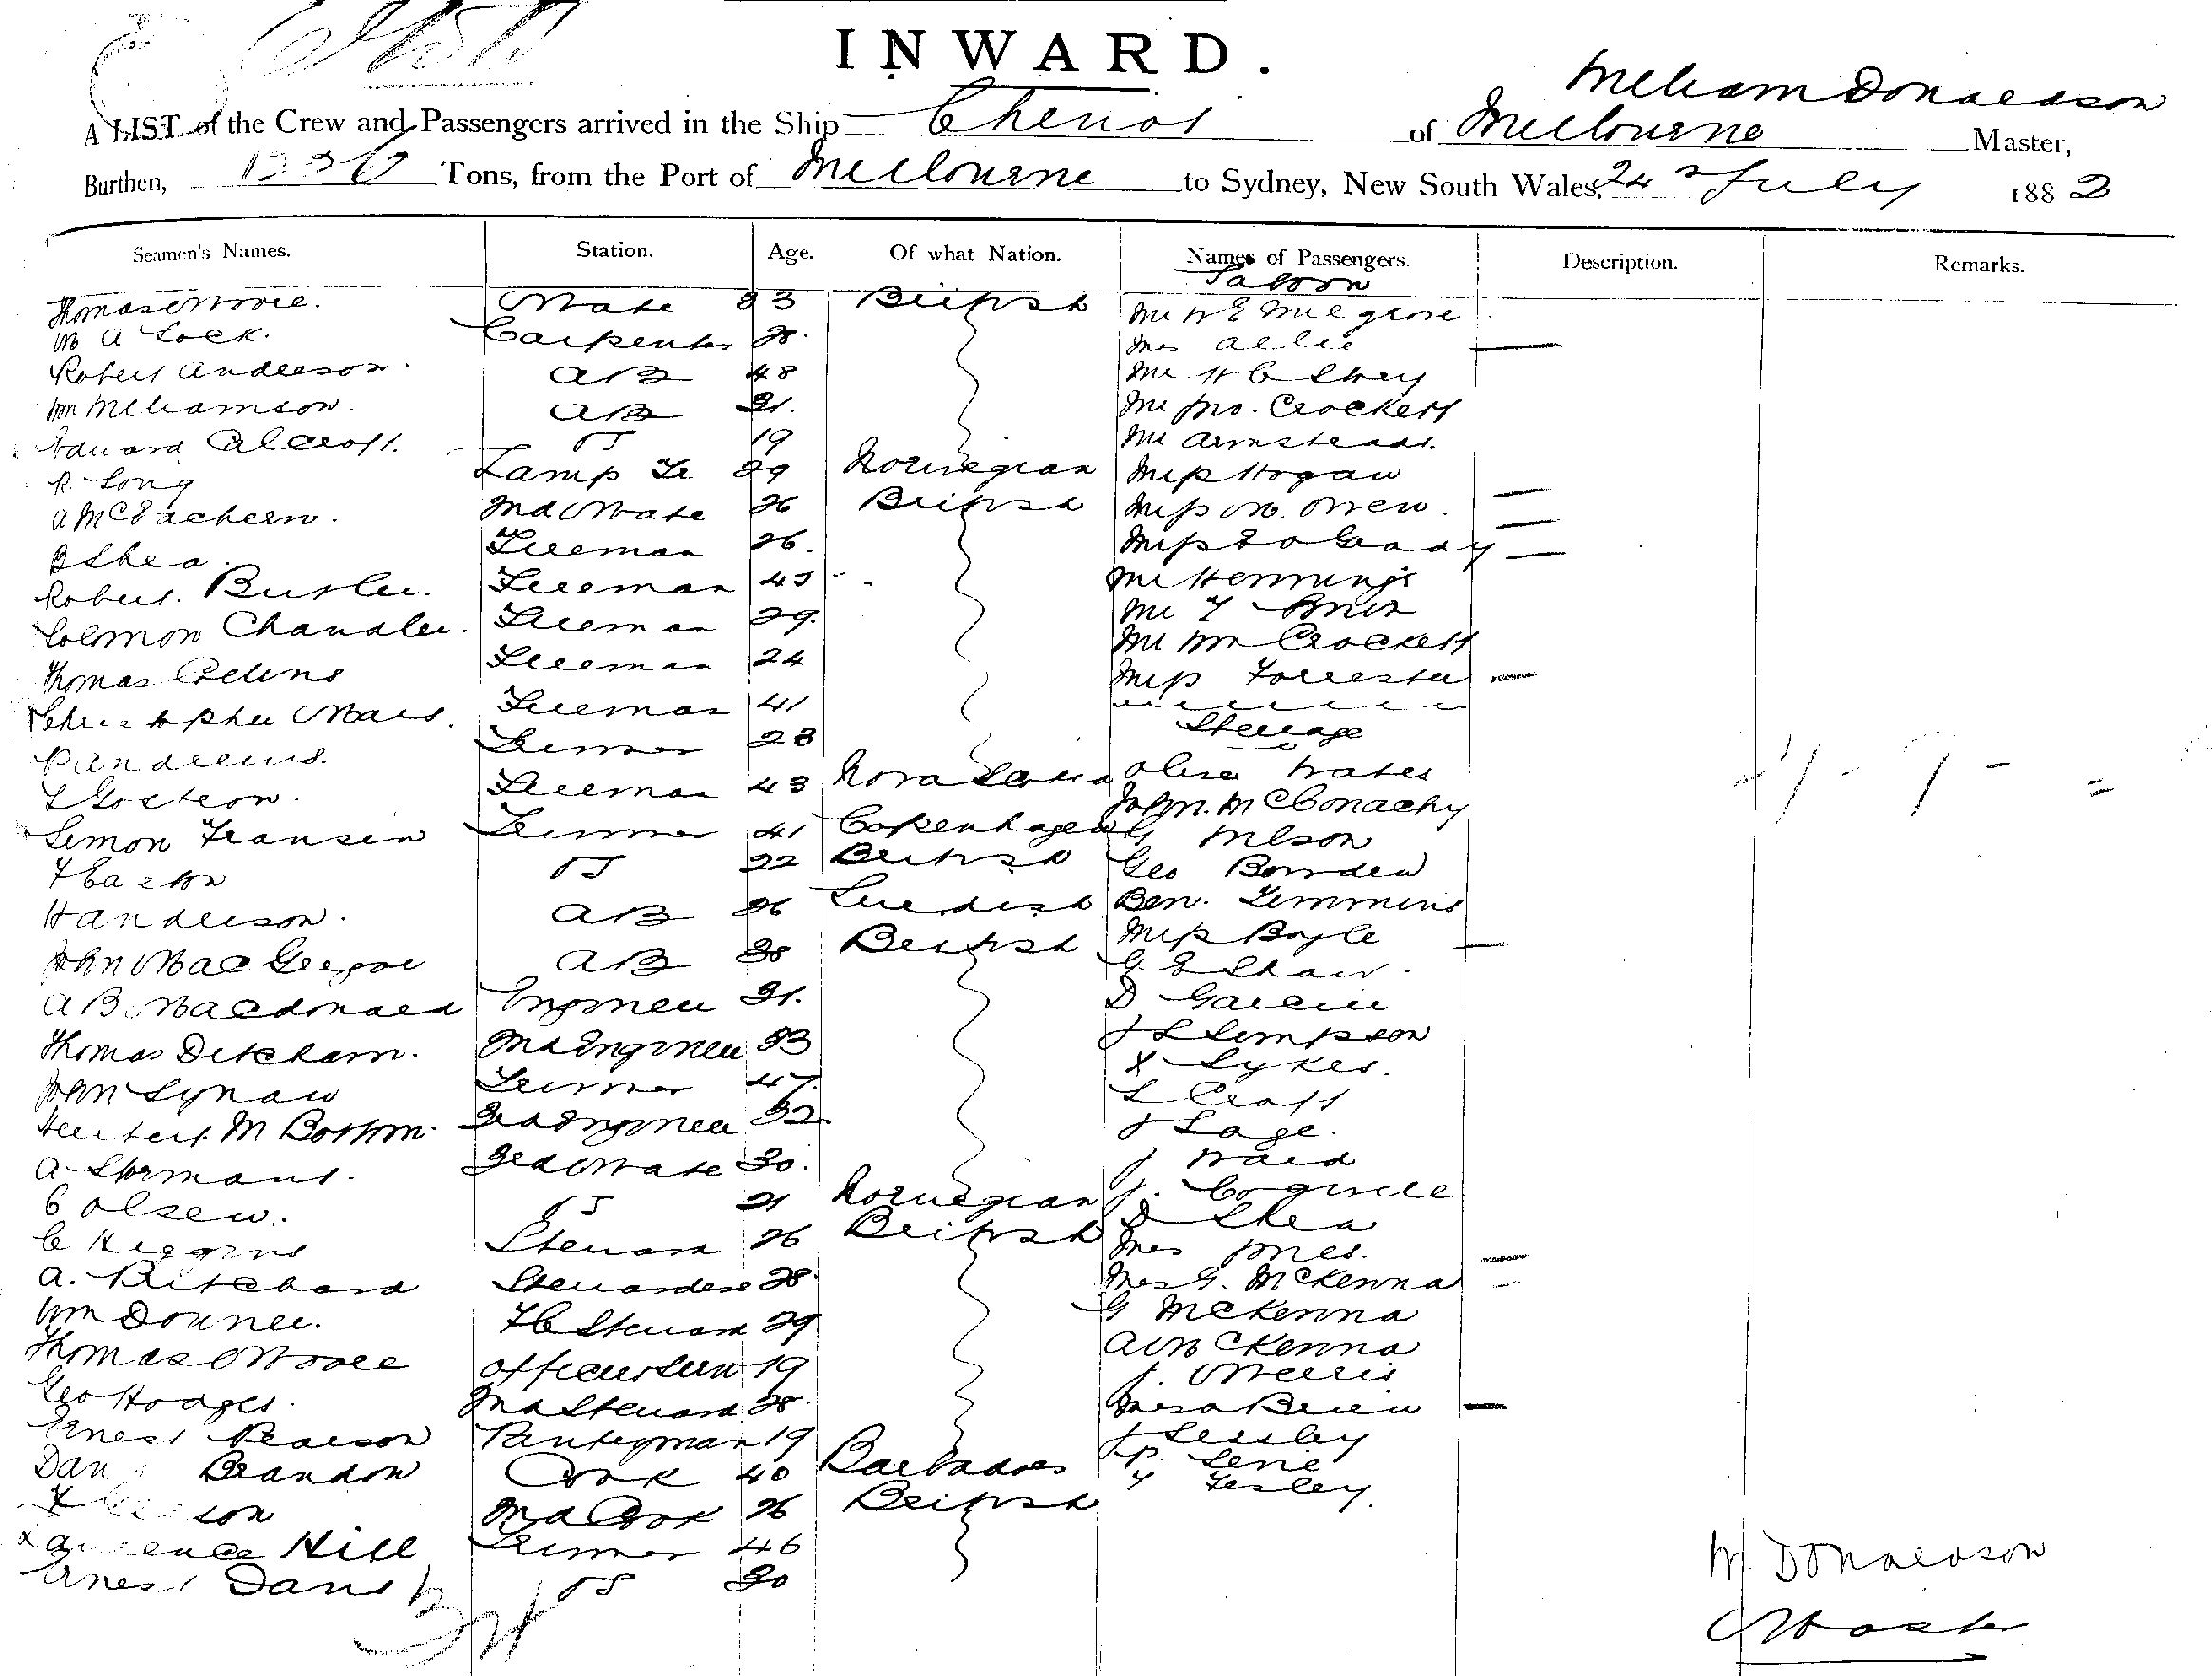 INWARD.
William Donaldson
A LIST of the Crew and Passengers arrived in the Ship Cheviot of Melbourne Master,
Burthen, Tons, from the Port of Melbourne to Sydney, New South Wales, 24th July 1882
Seamen's Names. Station. Age. Of what Nation. Names of Passengers. Description. Remarks.
Saloon
Thomas Moore. Mate 33 British Mr W E
Wm A Lock. Carpenter 28. Mrs Allie
Robert Anderson. AB 48 Mr H C
Wm Williamson. AB 31. Mr Jno. Crockett
Edward Alcroft. OS 19 Mr Armstead.
R. Long Lamp Tr 29 Norwegian Miss Hogan
A McEachern. 2nd Mate 26 British Miss M. Drew.
B Shea. Fireman 26. Miss
Robert. Butler. Fireman 45 Mr Hennings
Solomon Chandler. Fireman 29. Mr T
Thomas Collins Fireman 24 Mr Wm Crockett
Christopher Mars. Fireman 41 Miss Forrester
Steerage
P Andrews. Trimmer 23
Fireman 43 Nova Scotia Oliver Wates
Simon Fransen Trimmer 41 Copenhagen John. McConachy
F Easton OS 22 British G Wilson
Geo Bowden
H Anderson. AB 26 Swedish Ben. Timmins
John MacGregor AB 38 British Miss Boyle
G E Shaw.
A B Macdonald Engineer 31. D
Thomas Ditcham. 2nd Engineer 33 J S Simpson
John Synan Trimmer 47. Sykes.
Herbert M Bottom. 3rd Engineer 32 L Croft
J Sage.
A Stormant. 3rd Mate 30. J Ward
C Olsen. OS 21 Norwegian J.
C Higgins Steward 26 British D Shea
Mrs Jones.
A. Pritchard Stewardess 28. Mrs G. McKenna
Wm Donner. FC Steward 29 G McKenna
Thomas Moore Officers Serv 19 A McKenna
J. Morris
Geo Hodges. 2nd Steward 28. Mrs O Brien
Ernest Pearson Pantryman 19 J
Dan Brandon Cook 40 Barbadoes P.
2nd Cook 26 British
Laurence Hill Trimmer 46
Ernest Davis OS 20
W. Donaldson
Master